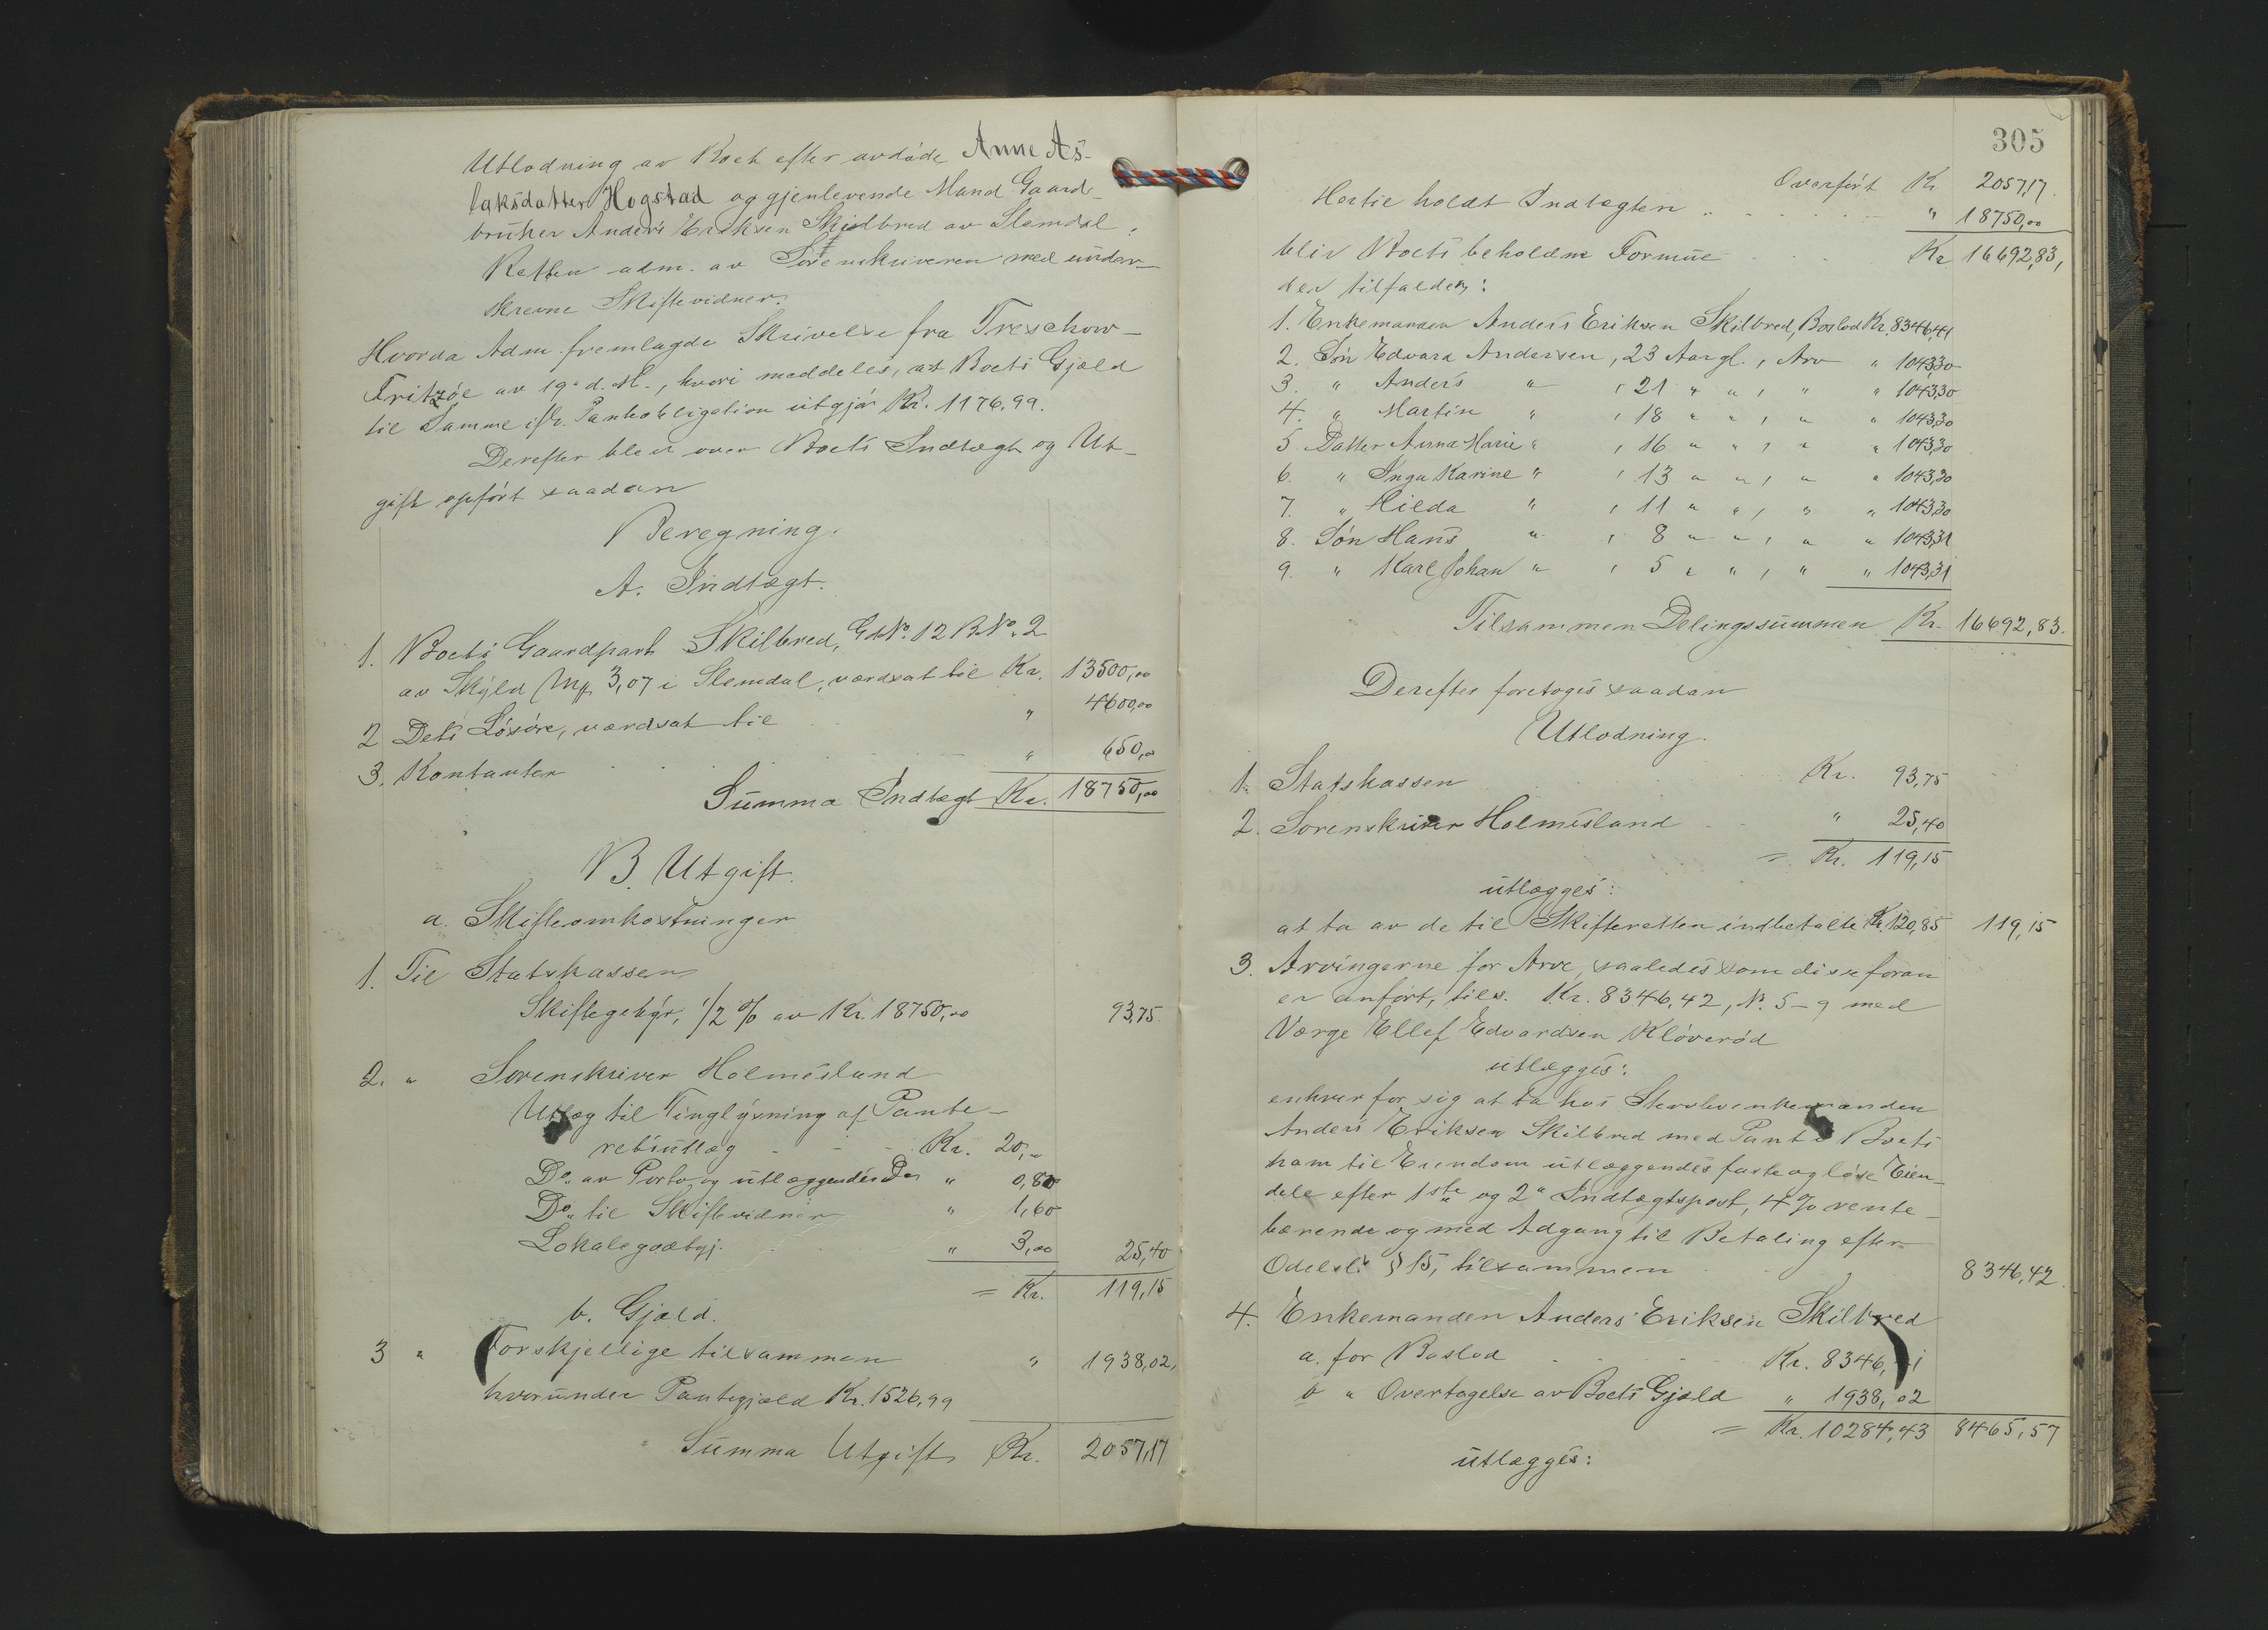 Utlodning av Boet efter avdøde Anne As-
laksdatter Hogstad og gjenlevende Mand Gaard-
bruker Anders Eriksen Skilbred av Slemdal.
Retten adm. av Sorenskriveren med under-
skrevne Skiftevidner.
Hvorda Adm. fremlagde Skrivelse fra Treschow-
Fritzøe av 19. d. M., hvori meddeles, at Boets Gjæld
til Samme iflr. Panteobligation utgjør Kr. 1176,99.
Derefter blev over Boets Indtægt og Ut-
gift opført saadan
Beregning.
A. Indtægt.
1. Boets Gaardpart Skilbred, G.No. 12 B.No. 2
av Skyld Mk 3,07 i Slemdal, værdsat til Kr. 13500,00
2 Dets Løsøre, værdsat til " 4600,00
3. Kontanter " 650,00
Summa Indtægt Kr. 18750,00
B. Utgift.
a. Skifteomkostninger
1. Til Statskassen
Skiftegebyr, 1/2 % av Kr. 18750,00 93,75.
2. " Sorenskriver Holmesland
Utlæg til Tinglysning af Pante-
retsutlæg Kr. 20,00
Do. av Porto og utlæggendes " 0,80
Do. til Skiftevidner " 1,60
Lokalegodtgj. " 3,00 25,40
= Kr. 119,15
b. Gjæld.
3 " Forskjellige tilsammen " 1938,02,
hvorunder Pantegjæld Kr. 1526,99
Summa Utgift Kr. 2057,17
305
Overført Kr 2057,17.
Hertil holdt Indtægten " 18750,00
bliv Boets beholdne Formue Kr 16692,83,
der tilfalder:
1. Enkemanden Anders Eriksen Skilbred, Boslod Kr. 8346,41
2. Søn Edvard Andersen, 23 Aar gl., Arv " 1043,30
3. " Anders " , 21 " " , " " 1043,30
4. " Martin " , 18 " " , " " 1043,30
5 Datter Anna Marie " , 16 " " , " " 1043,30
6. " Inga Karine " , 13 " " , " " 1043,30
7. " Hilda " , 11 " " , " " 1043,30
8. Søn Hans " , 8 " " , " " 1043,31
9. " Karl Johan " , 5 " " , " " 1043,31
Tilsammen Delingssummen Kr. 16692,83.
Derefter foretoges saadan
Utlodning.
1. Statskassen Kr. 93,75
2. Sorenskriver Holmesland " 25,40
= Kr. 119,15
utlægges:
at ta av de til Skifteretten indbetalte Kr. 120,85 119,15
3. Arvingerne for Arve, saaledes som disse foran
er anført, tils. Kr. 8346,42, N. 5-9 med
Værge Ellef Edvardsen Kløverød
utlægges:
enhver for sig at ta hos Stervboenkemanden
Anders Eriksen Skilbred med Pant i Boets
ham til Eiendom utlæggendes faste og løse Eien-
dele efter 1ste og 2. Indtægtspost, 4 % rente-
bærende og med Adgang til Betaling efter
Odelsl. § 15, tilsammen 8346,42.
4. Enkemanden Anders Eriksen Skilbred
a. for Boslod Kr. 8346,41
b " Overtagelse av Boets Gjæld " 1938,02
= Kr. 10284,43 8465,57
utlægges: